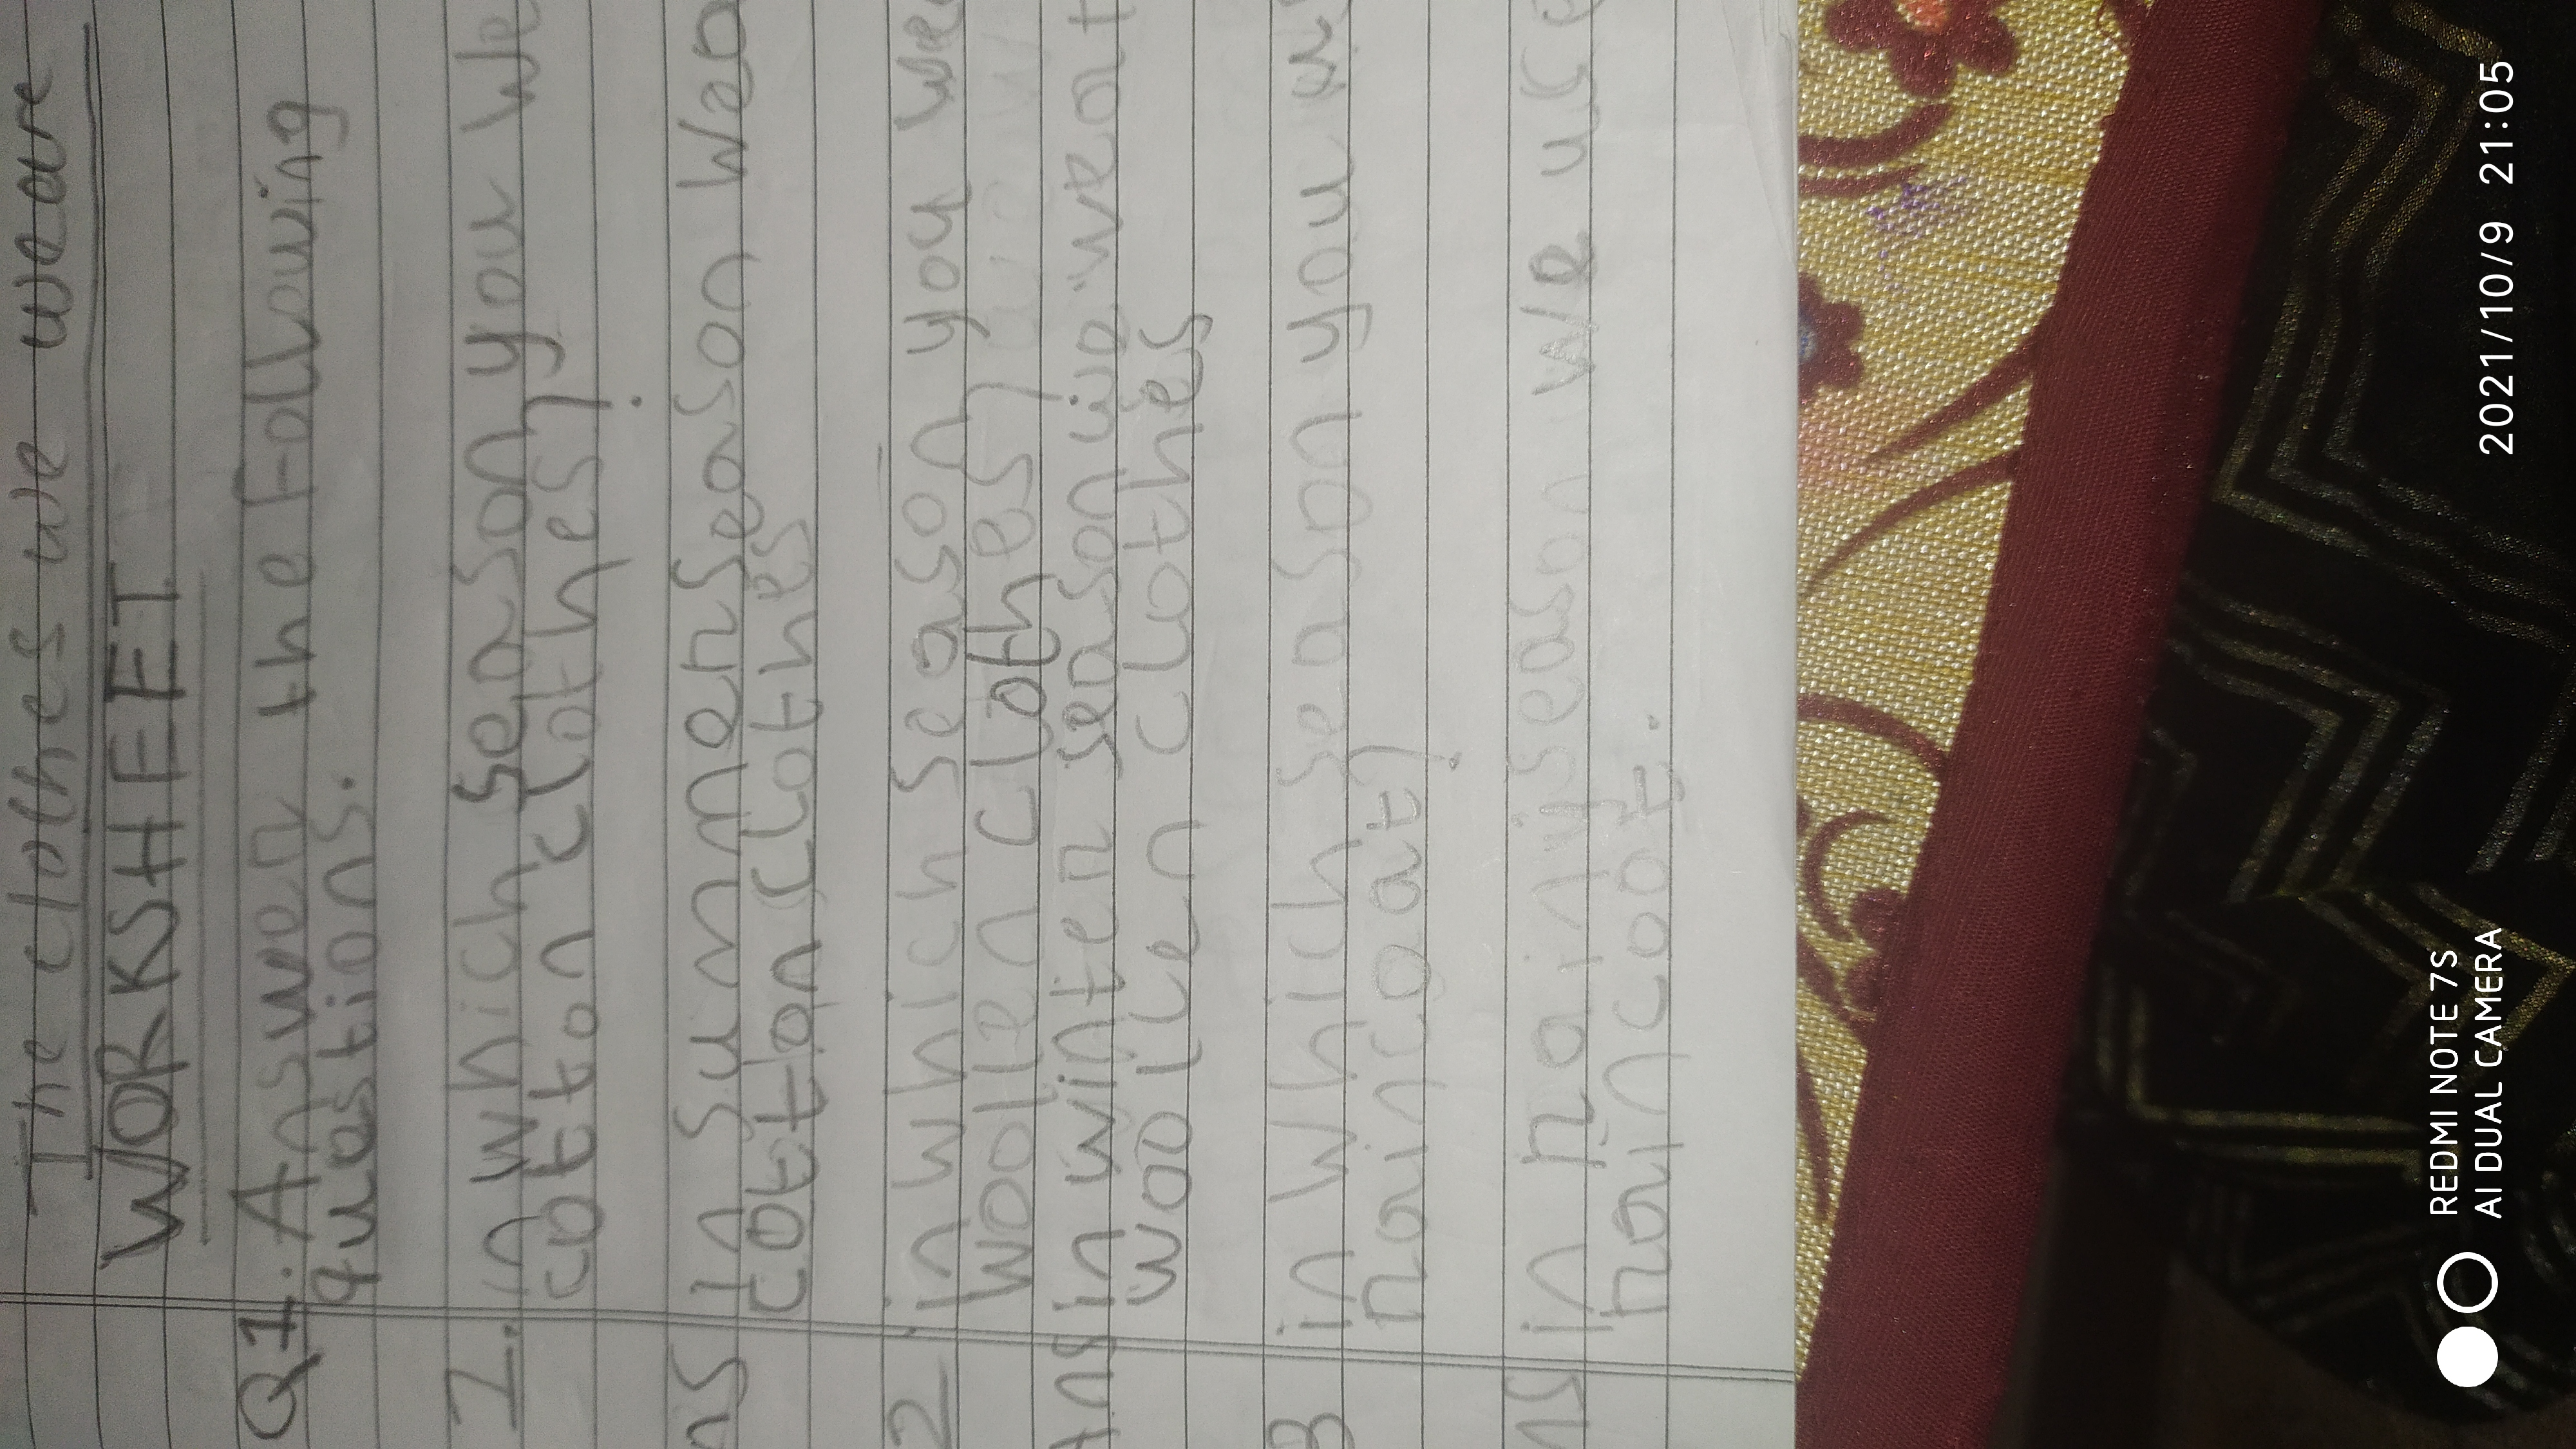 The clothes we weare
WORKSHEET
Q1. Answer the Following
questions.
1. in which season you we
cotton clothes?
ns In summer season wea
cotton clothes
2. in which season you wea
Woolen clothes?
Ans in winter season we wear
woolen clothes
3 in which season you
raincoat?
ns in rainy season we use
raincoat.
REDMI NOTE 7S
AI DUAL CAMERA
2021/10/9 21:05